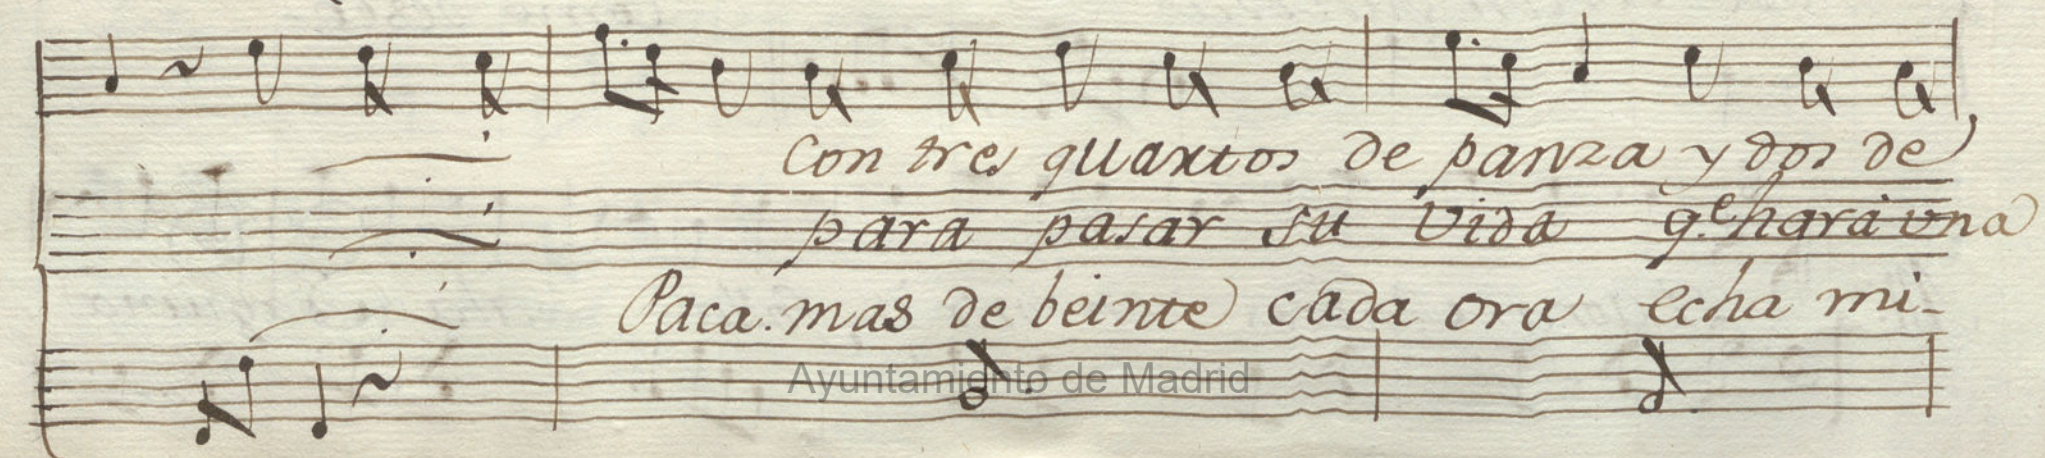 Con tres quartos de panza y dos de
para pasar su vida q.e hara una
Paca. mas de beinte cada ora echa mi-
Ayuntamiento de Madrid